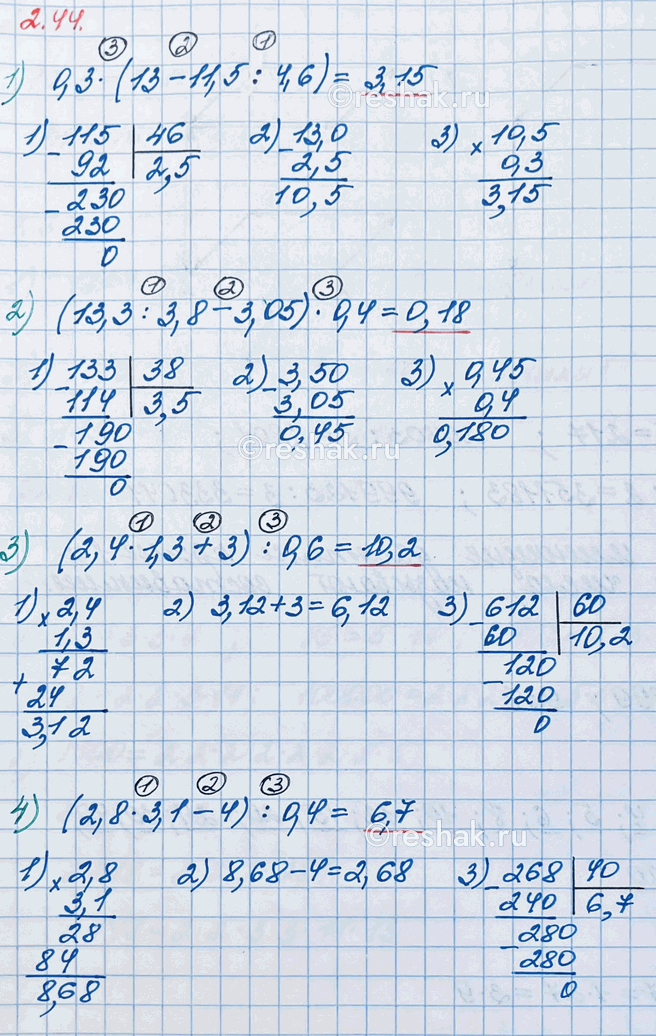 2.44.
③ ② ①
1) 0,3·(13-11,5:4,6)=3,15
1) 115 | 46 2) 13,0 3) × 10,5
- 92 | 2,5 - 2,5 0,3
- 230 10,5 3,15
230
0
① ② ③
2) (13,3:3,8-3,05)·0,4=0,18
1) 133 | 38 2) 3,50 3) × 0,45
- 114 | 3,5 - 3,05 0,4
- 190 0,45 0,180
190
0
① ② ③
3) (2,4·1,3+3):0,6=10,2
1) × 2,4 2) 3,12+3=6,12 3) - 612 | 60
1,3 60 | 10,2
72 - 120
+ 24 120
3,12 0
① ② ③
4) (2,8·3,1-4):0,4=6,7
1) × 2,8 2) 8,68-4=2,68 3) - 268 | 40
3,1 240 | 6,7
28 - 280
84 280
8,68 0
reshak.ru
reshak.ru
reshak.ru